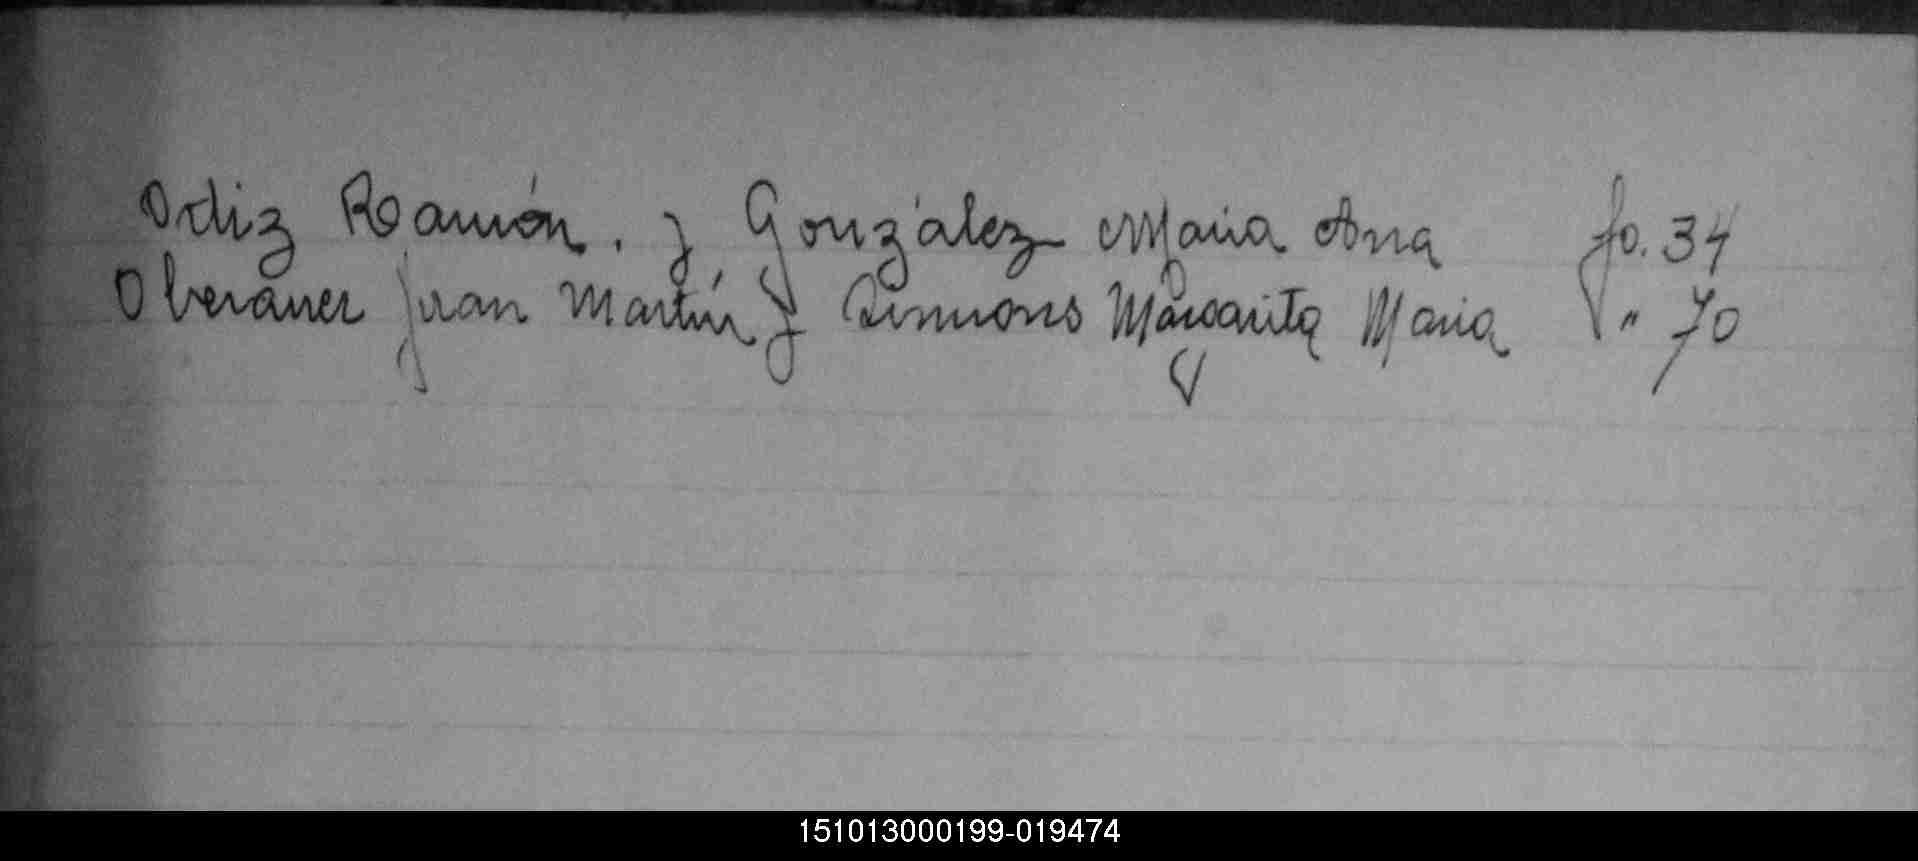 Odiz Ramón. y González Maria Ana fo. 34
Oberauer Juan Martín y Simmons Margarita Maria " 70
151013000199-019474